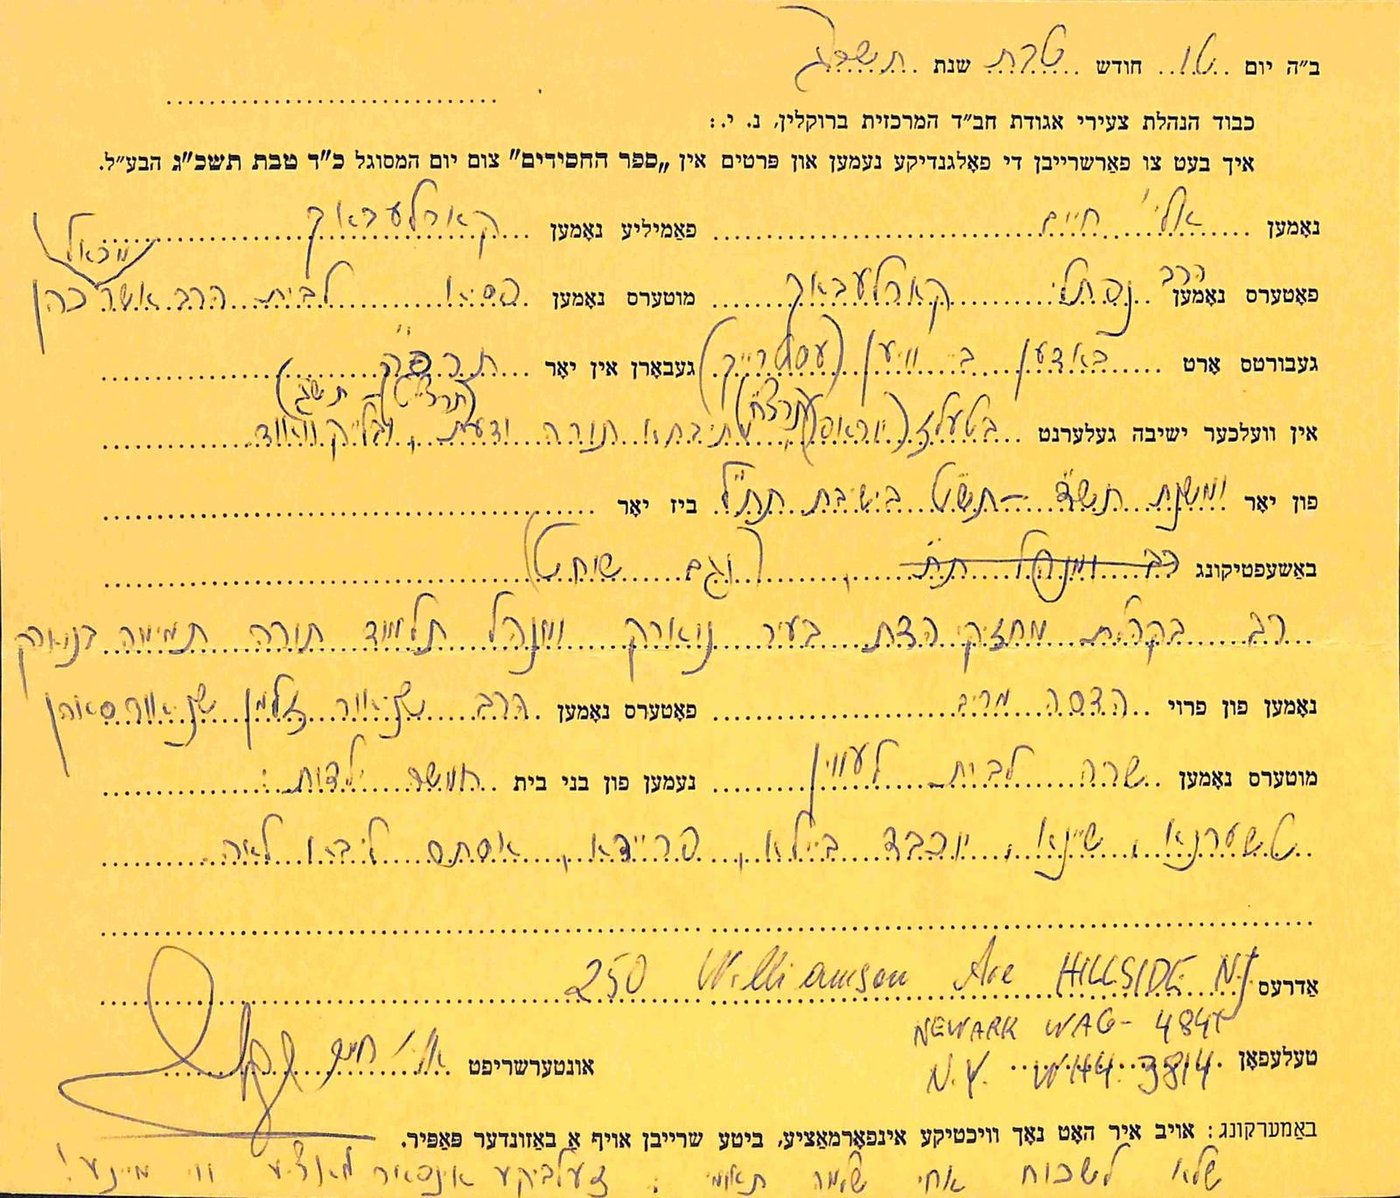 ב״ה יום טו חודש טבת שנת תשכג
כבוד הנהלת צעירי אגודת חב״ד המרכזית ברוקלין, נ. י.:
איך בעט צו פאַרשרייבן די פאָלגנדיקע נעמען און פרטים אין „ספר החסידים" צום יום המסוגל כ״ד טבת תשכ״ג הבע״ל.
נאָמען אלי׳ חיים פאַמיליע נאָמען קארלעבאך
פאָטערס נאָמען הרב נפתלי קארלעבאך מוטערס נאָמען פסיא לבית הרב אשר מיכאל כהן
געבורטס אָרט באדען ביי ווין (עסטרייך) געבאָרן אין יאָר תרפ״ה
אין וועלכער ישיבה געלערנט בטעלז (יוראפ) (תרצ״ח), מתיבתא תורה ודעת (תרצ״ט - תשג)
פון יאָר ומשנת תש״ד – תש״ט בישיבת תת״ל ביז יאָר
באַשעפטיקונג רב ומנהל ת״ת, (וגם שוחט)
רב בקהלת מחזיקי הדת בעיר נוארק ומנהל תלמוד תורה תמימה בנוארק
נאָמען פון פרוי הדסה מרים פאָטערס נאָמען הרב שניאור זלמן שניאורסאהן
מוטערס נאָמען שרה לבית לעווין נעמען פון בני בית חמשה ילדות:
טשערנא, שיינא, יוכבד ביילא, פריידא, אסתר ליבא לאה
אַדרעס 250 Williamson Ave HILLSIDE N.J
NEWARK WA6-4847
טעלעפאָן N.Y. WH4.3814 אונטערשריפט אלי׳ חיים
באַמערקונג: אויב איר האָט נאָך וויכטיקע אינפאָרמאַציע, ביטע שרייבן אויף אַ באַזונדער פּאַפּיר.
שלא לשכוח אחי שלמה תאומי: זעלביקע אינפארמאציע ווי מיינע!